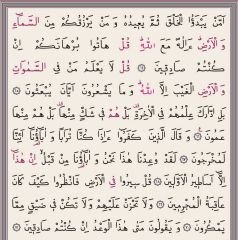 أَمَّنْ يَبْدَؤُا الْخَلْقَ ثُمَّ يُعِيدُهُ وَ مَنْ يَرْزُقُكُمْ مِنَ السَّمَآءِ
وَ الْاَرْضِ ءَاِلٰهٌ مَعَ اللّٰهِ قُلْ هَاتُوا بُرْهَانَكُمْ اِنْ
كُنْتُمْ صَادِقِينَ قُلْ لَا يَعْلَمُ مَنْ فِي السَّمٰوَاتِ
وَ الْاَرْضِ الْغَيْبَ اِلَّا اللّٰهُ وَ مَا يَشْعُرُونَ اَيَّانَ يُبْعَثُونَ
بَلِ ادَّارَكَ عِلْمُهُمْ فِي الْاٰخِرَةِ بَلْ هُمْ فِي شَكٍّ مِنْهَا بَلْ هُمْ مِنْهَا
عَمُونَ وَ قَالَ الَّذِينَ كَفَرُوا ءَاِذَا كُنَّا تُرَابًا وَ اٰبَآؤُنَا اَئِنَّا
لَمُخْرَجُونَ لَقَدْ وُعِدْنَا هٰذَا نَحْنُ وَ اٰبَآؤُنَا مِنْ قَبْلُ اِنْ هٰذَا
اِلَّا اَسَاطِيرُ الْاَوَّلِينَ قُلْ سِيرُوا فِي الْاَرْضِ فَانْظُرُوا كَيْفَ كَانَ
عَاقِبَةُ الْمُجْرِمِينَ وَ لَا تَحْزَنْ عَلَيْهِمْ وَ لَا تَكُنْ فِي ضَيْقٍ مِمَّا
يَمْكُرُونَ وَ يَقُولُونَ مَتٰى هٰذَا الْوَعْدُ اِنْ كُنْتُمْ صَادِقِينَ